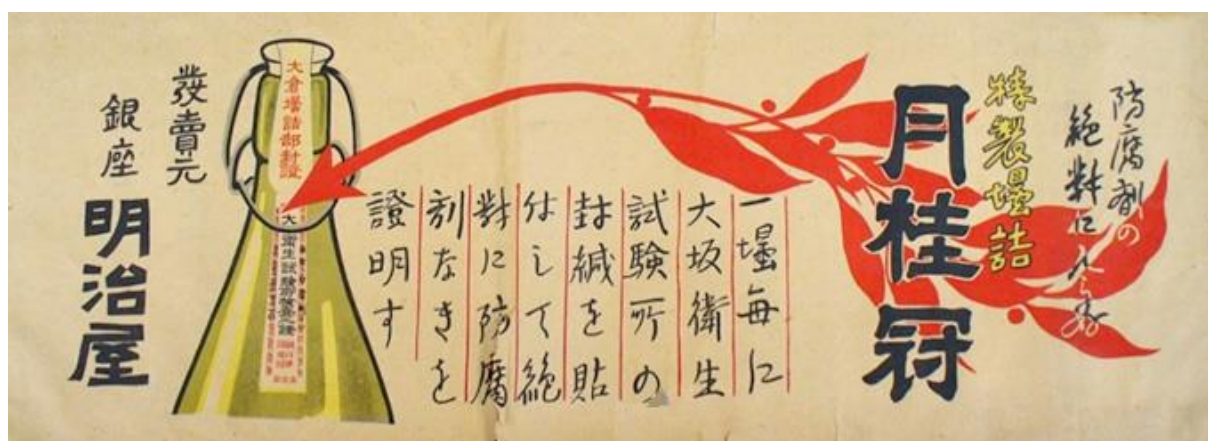 防腐劑の
絶對に入らぬ
特製壜詰
月桂冠
一壜毎に
大坂衛生
試験所の
封緘を貼
付して絶
對に防腐
剤なきを
證明す
大倉壜詰部封證
發賣元
銀座
明治屋